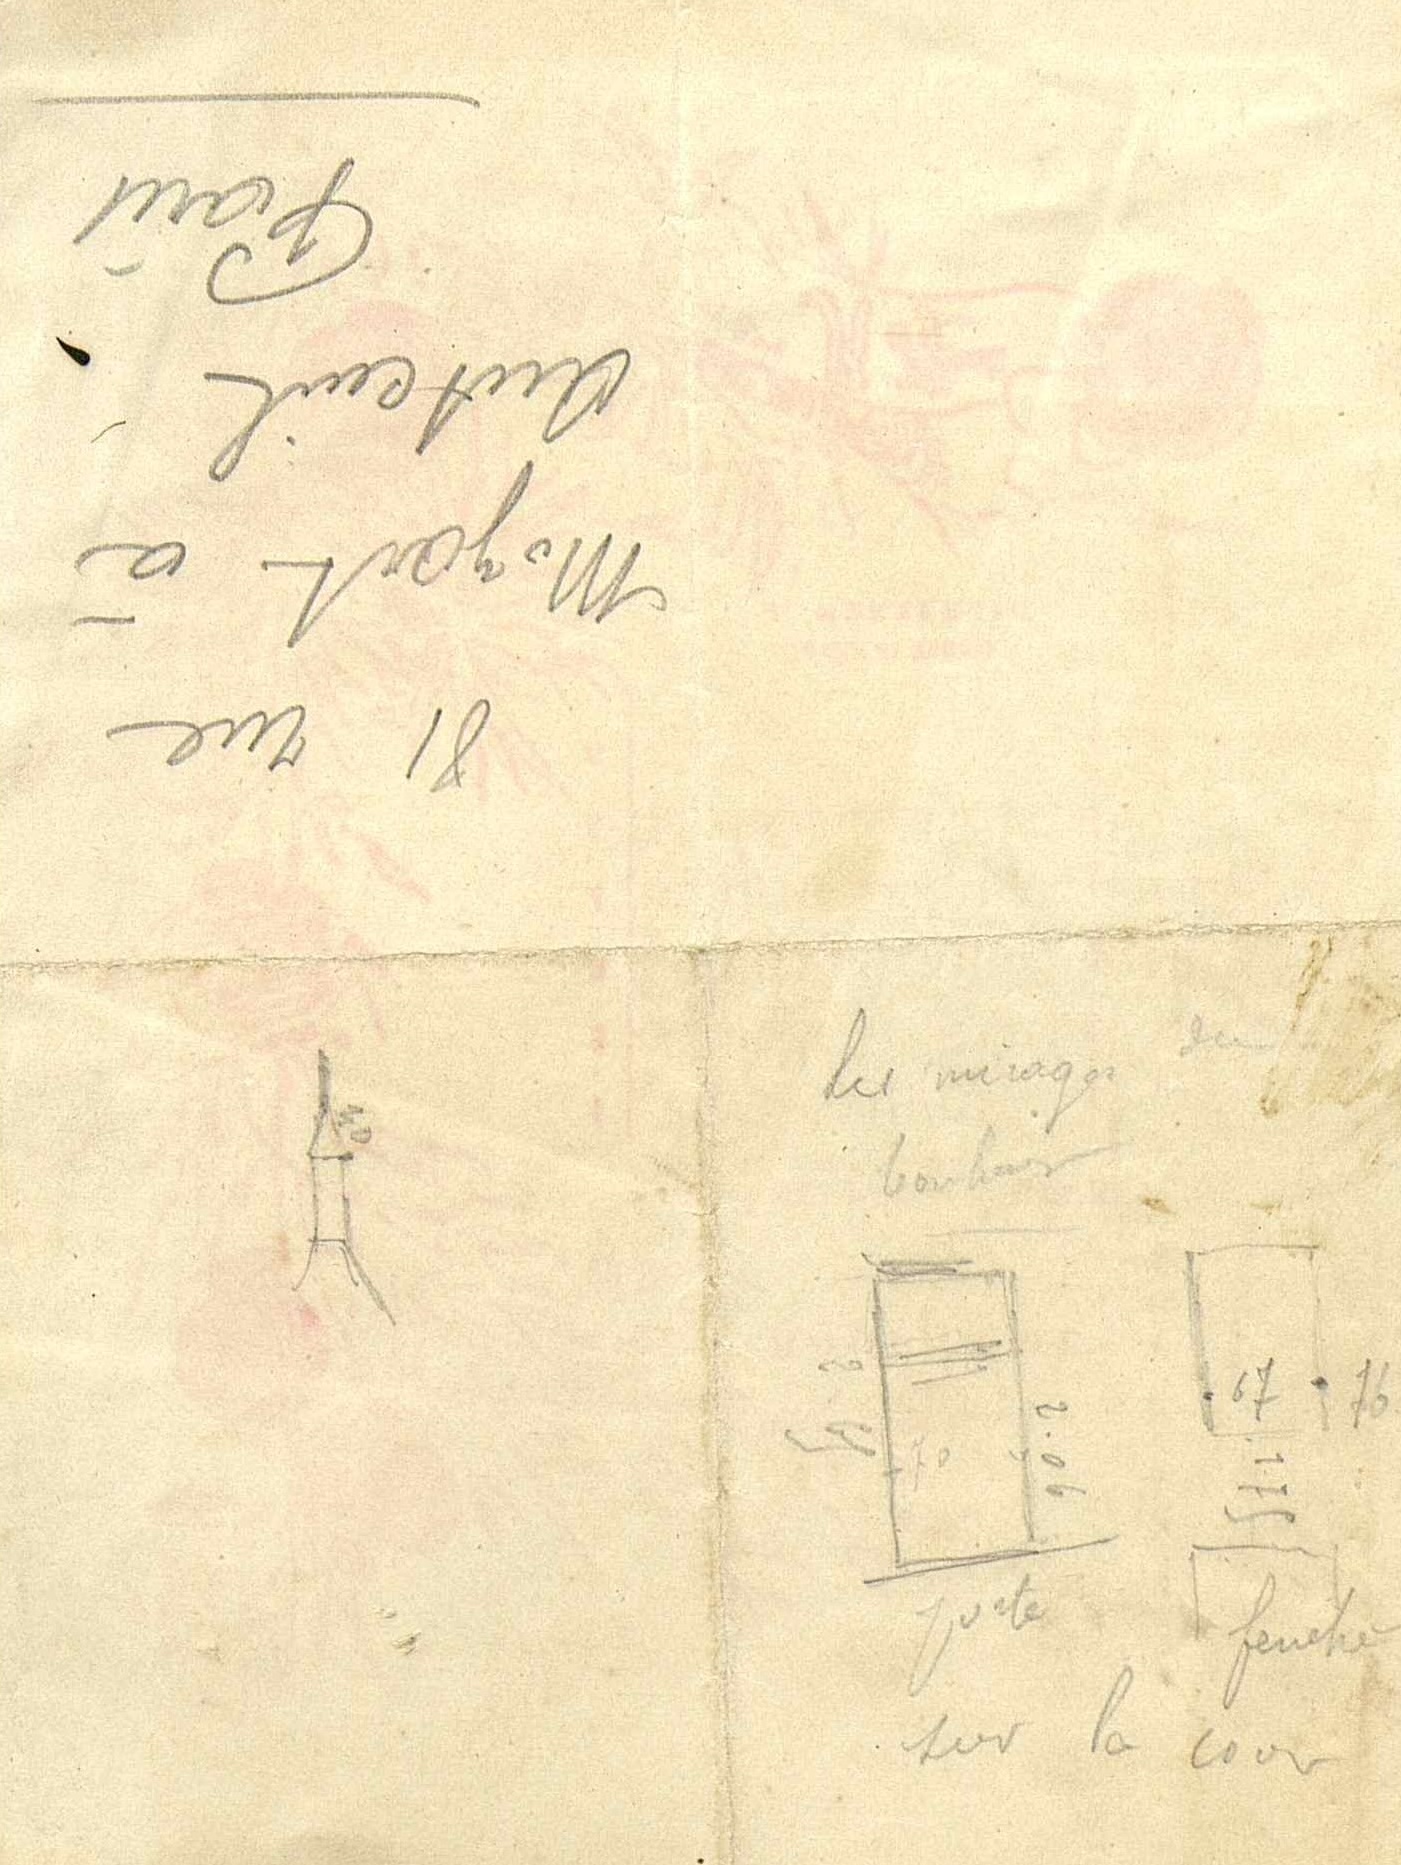 81 rue
Mozart à
Auteuil
Paris
Les mirages du
bonheur
70
2.06
67
76
1.75
porte
fenetre
sur la cour